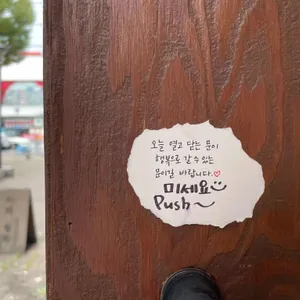 오늘 열고 닫는 문이
행복으로 갈 수 있는
문이길 바랍니다.♡
미세요
Push~